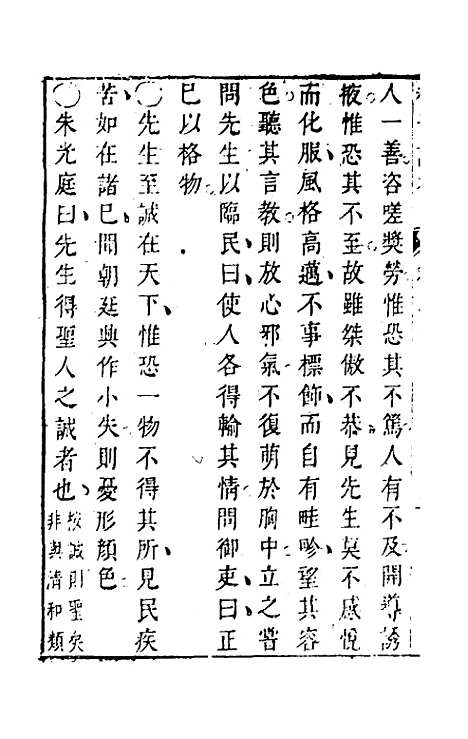 人一善咨嗟獎勞惟恐其不篤人有不及開導誘
掖惟恐其不至故雖桀傲不恭見先生莫不感悅
而化服風格高邁不事標飾而自有畦畛望其容
色聽其言教則放心邪氣不復萌於胸中立之嘗
問先生以臨民曰使人各得輸其情問御吏曰正
已以格物
○先生至誠在天下惟恐一物不得其所見民疾
苦如在諸已聞朝廷興作小失則憂形顏色
○朱光庭曰先生得聖人之誠者也按誠則聖矣
非與清和類